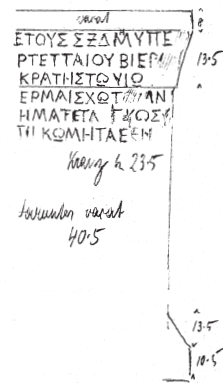 vacat
8
ΕΤΟΥΣ ΣΞΔ Μ ΥΠΕ
ΡΤΕΤΤΑΙΟΥ ΒΙΕΡΑ
13·5
ΚΡΑΤΗΣΤΟΥΙΩ
ΕΡΜΑΙΣΧΩΤ ΑΝ
ΗΜΑΤΕΓΑ
ΤΠ ΚΩΜΗΤΑΕΕΝ
Kranz h 23·5
darunter vacat
40·5
13·5
10·5